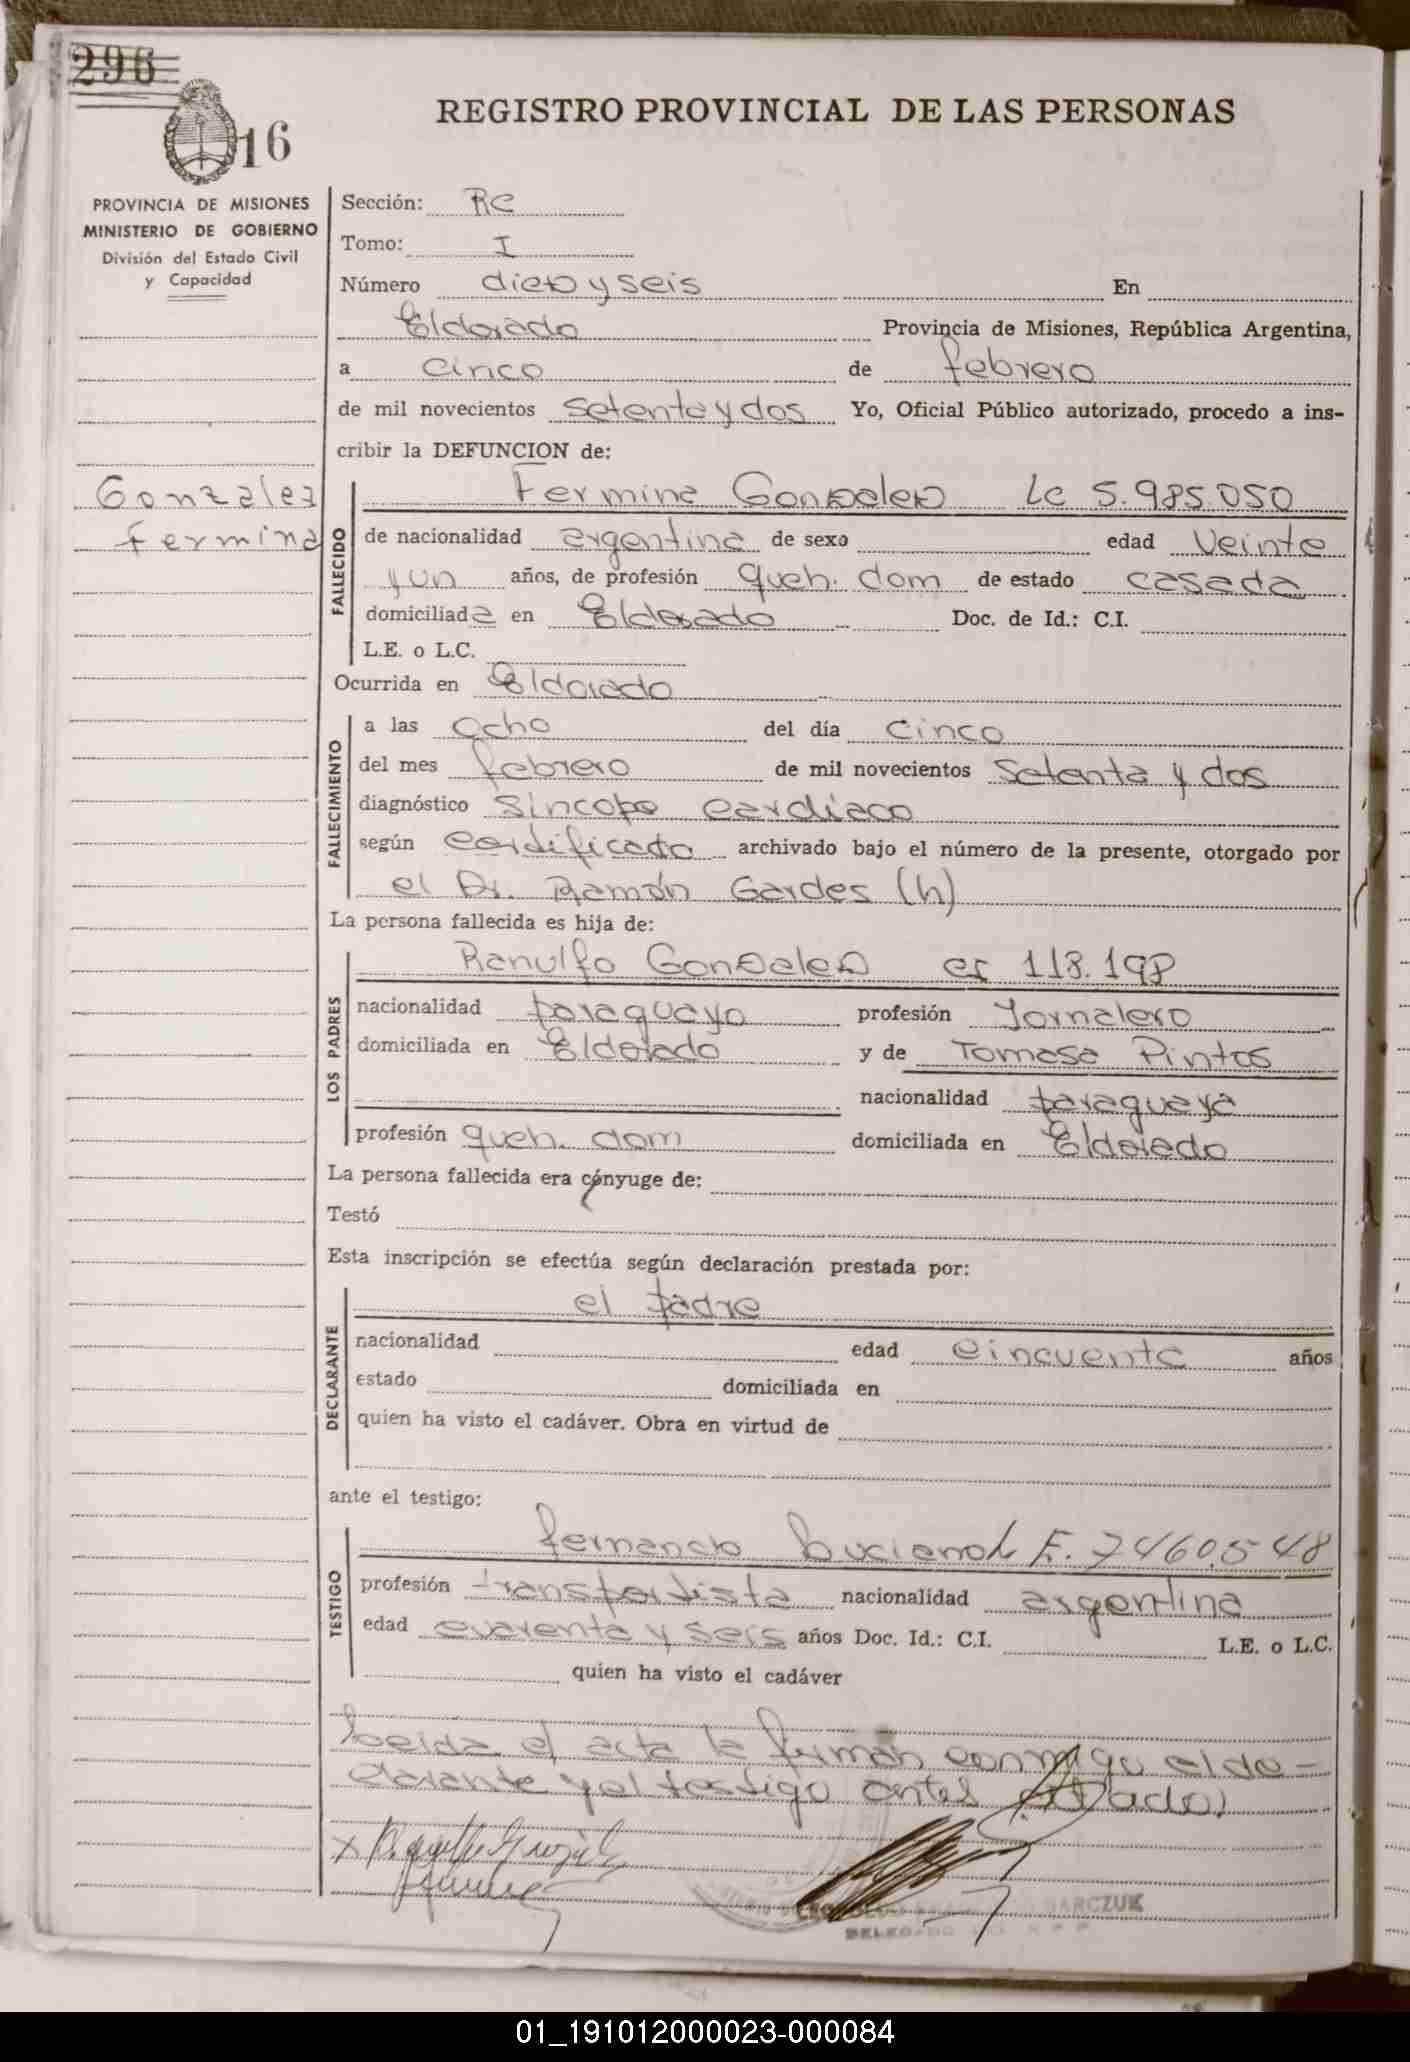 296
16
REGISTRO PROVINCIAL DE LAS PERSONAS
PROVINCIA DE MISIONES
MINISTERIO DE GOBIERNO
División del Estado Civil
y Capacidad
Gonzalez
Fermina
Sección: RC
Tomo: I
Número diez y seis En
Eldorado Provincia de Misiones, República Argentina,
a cinco de febrero
de mil novecientos setenta y dos Yo, Oficial Público autorizado, procedo a ins-
cribir la DEFUNCION de:
FALLECIDO
Fermina Gonzalez Lc 5.985.050
de nacionalidad argentina de sexo edad veinte
y un años, de profesión queh. dom de estado casada
domiciliada en Eldorado Doc. de Id.: C.I.
L.E. o L.C.
Ocurrida en Eldorado
FALLECIMIENTO
a las ocho del día cinco
del mes febrero de mil novecientos setenta y dos
diagnóstico sincope cardiaco
según certificado archivado bajo el número de la presente, otorgado por
el Dr. Ramón Gardes (h)
La persona fallecida es hija de:
LOS PADRES
Ranulfo Gonzalez 118.198
nacionalidad paraguayo profesión Jornalero
domiciliada en Eldorado y de Tomasa Pintos
nacionalidad paraguaya
profesión queh. dom domiciliada en Eldorado
La persona fallecida era cónyuge de:
Testó
Esta inscripción se efectúa según declaración prestada por:
DECLARANTE
el padre
nacionalidad edad cincuenta años
estado domiciliada en
quien ha visto el cadáver. Obra en virtud de
ante el testigo:
TESTIGO
fernando L E. 7460.548
profesión transportista nacionalidad argentina
edad cuarenta y seis años Doc. Id.: C.I. L.E. o L.C.
quien ha visto el cadáver
Leida el acta la firman conmigo el de-
clarante y el testigo antes
01_191012000023-000084